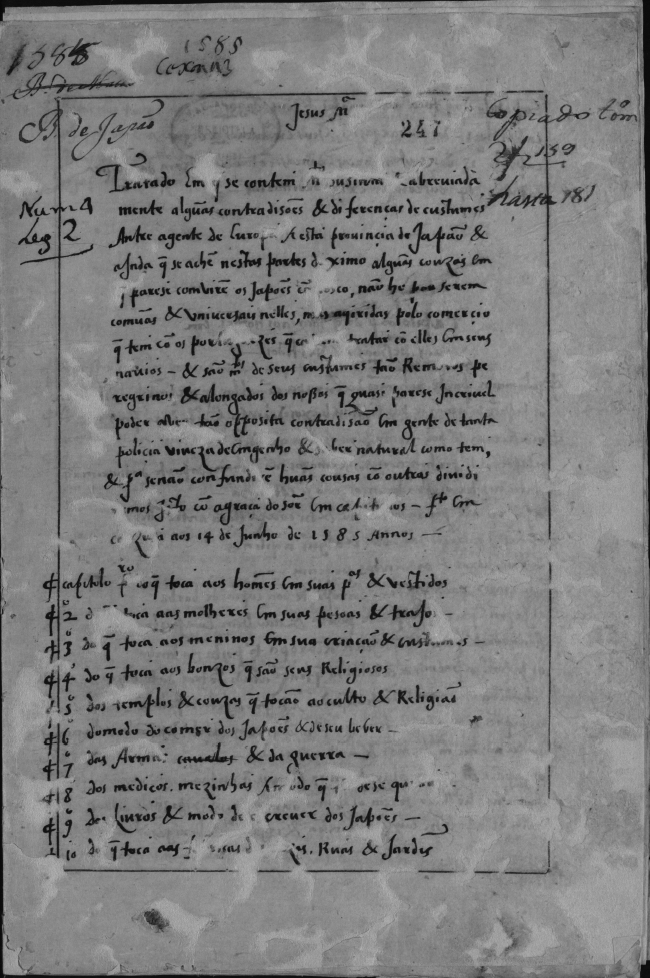 1585
B. de Japão
Jesus Mª
247
Copiado tom
159
hasta 181
Num 4
Leg 2
Tratado Em q̃ se contem susinta & abreviada
mente alguãs contradisoẽs & diferenças de custumes
Antre agente de Europa & esta provincia de Japão &
aInda q̃ se achẽ nestas partes do ximo alguãs couzas Em
q̃ parese comvirẽ os Japoẽs cõ nosco, não he por serem
comuãs & universais nelles, mas aqiridas pólo comercio
q̃ tem cõ os portuguezes q̃ tratar cõ elles Em seus
navios – & são mᵗᵒˢ de seus custumes tão Remotos pe
regrinos & alongados dos noßos q̃ quasi parese Increivel
poder aver tão opposita contradisão Em gente de tanta
policia viveza de Emgenho & saber natural como tem,
& pª se não confundirẽ huãs cousas cõ outras dividi
remos isto cõ agraça do sõr Em capitolos – fᵗᵒ Em
aos 14 de Junho de 1585 Annos –
capitolo pʳᵒ do q̃ toca aos homẽs Em suas pᵃˢ & vestidos
2º do q̃ toca aas molheres Em suas pesoas & trajos –
3º do q̃ toca aos meninos Em sua criação & custumes –
4º do q̃ toca aos bonzos q̃ são seus Religiosos
5º dos templos & couzas q̃ tocão ao culto & Religião
6º do modo do comer dos Japoẽs & de seu beber –
7º das Armas & da guerra –
8 dos medicos. mezinhas & modo
9º dos livros & modo de escrever dos Japoẽs –
10 do q̃ toca aas Ruas & Jardĩs